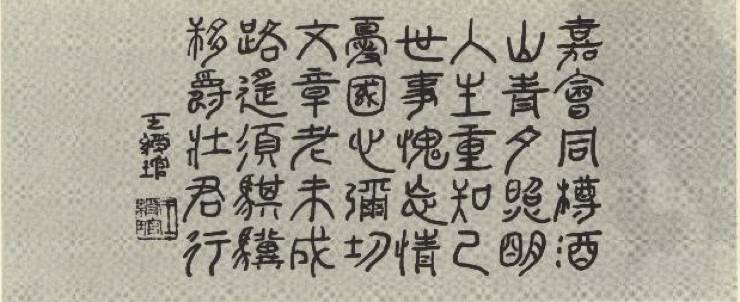 嘉會同樽酒
山青夕照明
人生重知己
世事愧忘情
憂國心彌切
文章老未成
路遙須騏驥
移爵壯君行
王綬琯